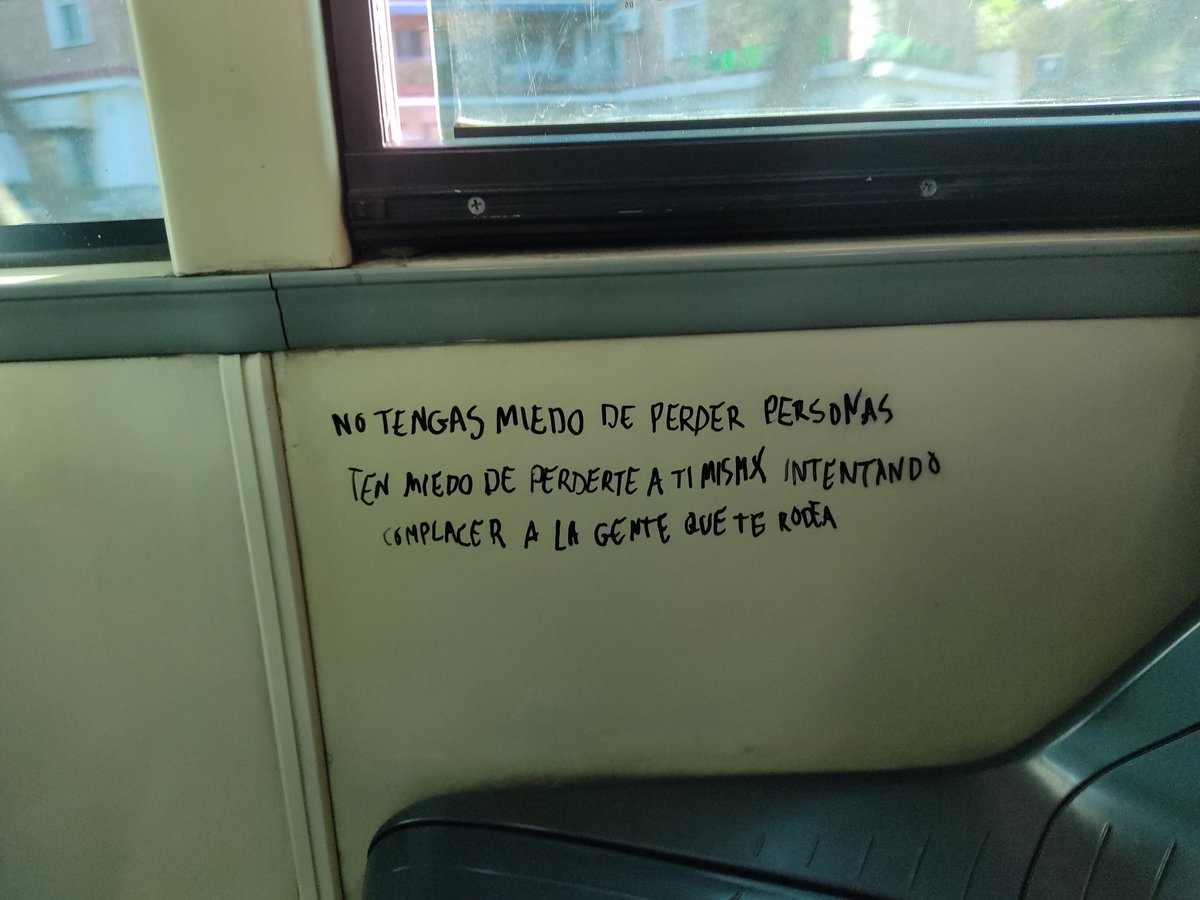 NO TENGAS MIEDO DE PERDER PERSONAS
TEN MIEDO DE PERDERTE A TI MISMX INTENTANDO
COMPLACER A LA GENTE QUE TE RODEA